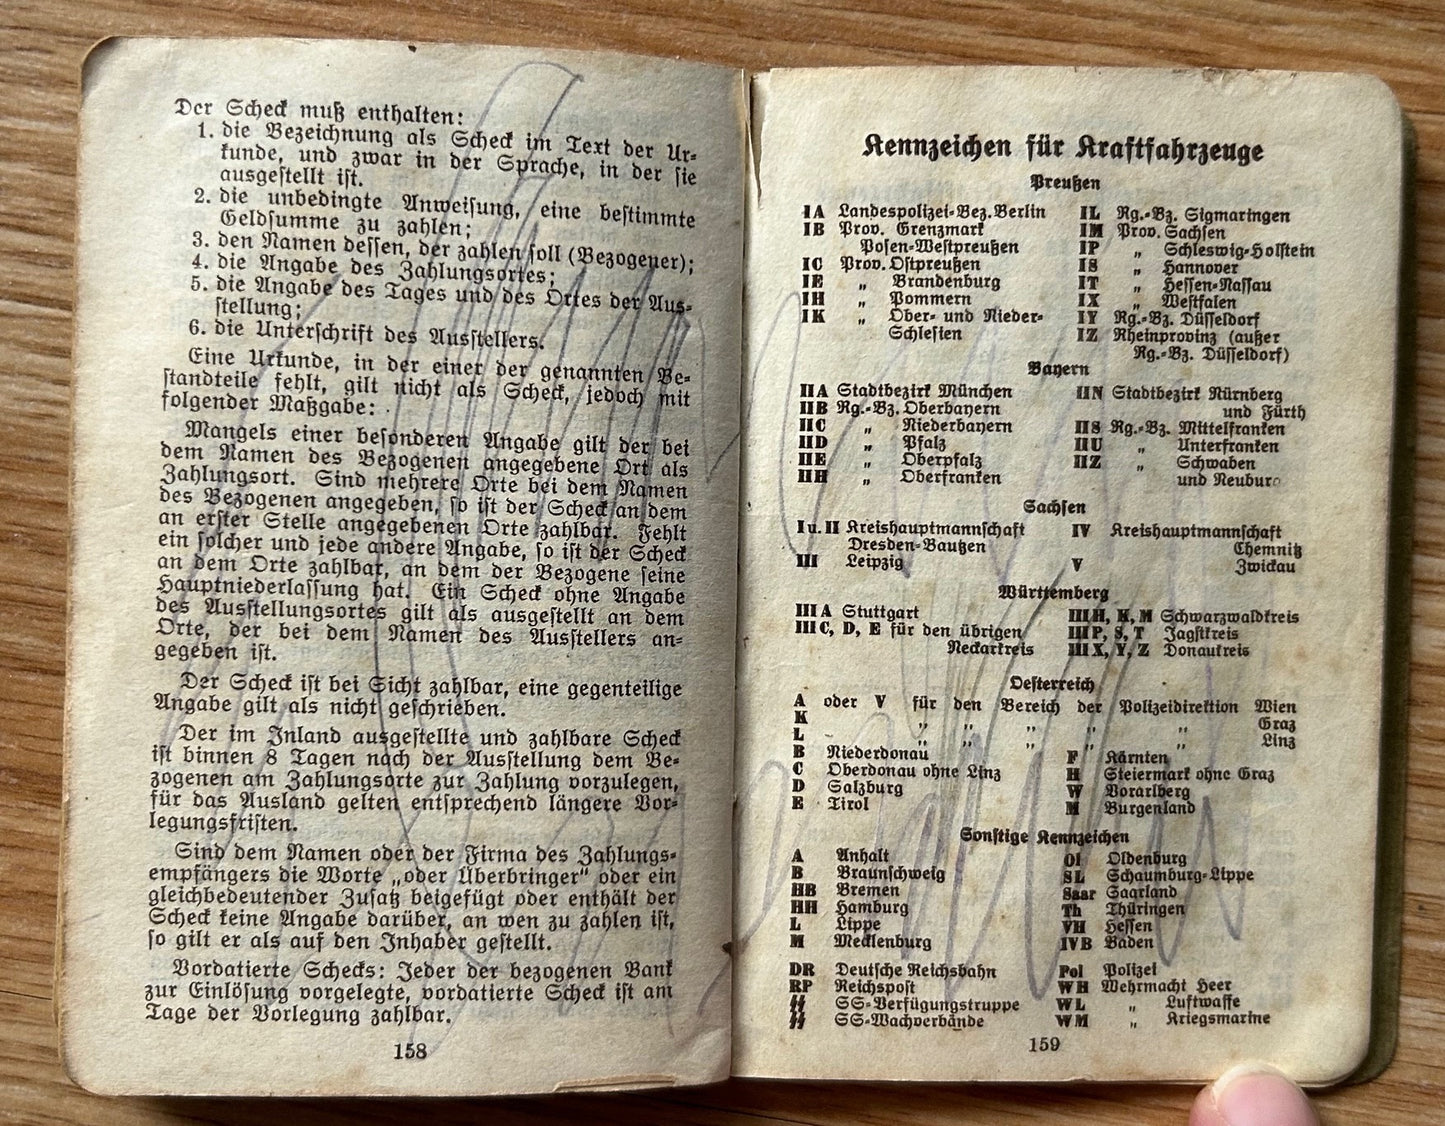 Der Scheck muß enthalten:
1. die Bezeichnung als Scheck im Text der Ur-
kunde, und zwar in der Sprache, in der sie
ausgestellt ist.
2. die unbedingte Anweisung, eine bestimmte
Geldsumme zu zahlen;
3. den Namen dessen, der zahlen soll (Bezogener);
4. die Angabe des Zahlungsortes;
5. die Angabe des Tages und des Ortes der Aus-
stellung;
6. die Unterschrift des Ausstellers.
Eine Urkunde, in der einer der genannten Be-
standteile fehlt, gilt nicht als Scheck, jedoch mit
folgender Maßgabe:
Mangels einer besonderen Angabe gilt der bei
dem Namen des Bezogenen angegebene Ort als
Zahlungsort. Sind mehrere Orte bei dem Namen
des Bezogenen angegeben, so ist der Scheck an dem
an erster Stelle angegebenen Orte zahlbar. Fehlt
ein solcher und jede andere Angabe, so ist der Scheck
an dem Orte zahlbar, an dem der Bezogene seine
Hauptniederlassung hat. Ein Scheck ohne Angabe
des Ausstellungsortes gilt als ausgestellt an dem
Orte, der bei dem Namen des Ausstellers an-
gegeben ist.
Der Scheck ist bei Sicht zahlbar, eine gegenteilige
Angabe gilt als nicht geschrieben.
Der im Inland ausgestellte und zahlbare Scheck
ist binnen 8 Tagen nach der Ausstellung dem Be-
zogenen am Zahlungsorte zur Zahlung vorzulegen,
für das Ausland gelten entsprechend längere Vor-
legungsfristen.
Sind dem Namen oder der Firma des Zahlungs-
empfängers die Worte „oder Überbringer“ oder ein
gleichbedeutender Zusatz beigefügt oder enthält der
Scheck keine Angabe darüber, an wen zu zahlen ist,
so gilt er als auf den Inhaber gestellt.
Vordatierte Schecks: Jeder der bezogenen Bank
zur Einlösung vorgelegte, vordatierte Scheck ist am
Tage der Vorlegung zahlbar.
158
Kennzeichen für Kraftfahrzeuge
Preußen
IA Landespolizei-Bez. Berlin
IB Prov. Grenzmark
Posen-Westpreußen
IC Prov. Ostpreußen
IE „ Brandenburg
IH „ Pommern
IK „ Ober- und Nieder-
Schlesien
IL Rg.-Bz. Sigmaringen
IM Prov. Sachsen
IP „ Schleswig-Holstein
IS „ Hannover
IT „ Hessen-Nassau
IX „ Westfalen
IY Rg.-Bz. Düsseldorf
IZ Rheinprovinz (außer
Rg.-Bz. Düsseldorf)
Bayern
IIA Stadtbezirk München
IIB Rg.-Bz. Oberbayern
IIC „ Niederbayern
IID „ Pfalz
IIE „ Oberpfalz
IIH „ Oberfranken
IIN Stadtbezirk Nürnberg
und Fürth
IIS Rg.-Bz. Mittelfranken
IIU „ Unterfranken
IIZ „ Schwaben
und Neuburg
Sachsen
I u. II Kreishauptmannschaft
Dresden-Bautzen
III Leipzig
IV Kreishauptmannschaft
Chemnitz
V Zwickau
Württemberg
IIIA Stuttgart
IIIC, D, E für den übrigen
Neckarkreis
IIIH, K, M Schwarzwaldkreis
IIIP, S, T Jagstkreis
IIIX, Y, Z Donaukreis
Oesterreich
A oder V für den Bereich der Polizeidirektion Wien
K „ „ „ „ „ Graz
L „ „ „ „ „ Linz
B Niederdonau
C Oberdonau ohne Linz
D Salzburg
E Tirol
F Kärnten
H Steiermark ohne Graz
W Vorarlberg
M Burgenland
Sonstige Kennzeichen
A Anhalt
B Braunschweig
HB Bremen
HH Hamburg
L Lippe
M Mecklenburg
Ol Oldenburg
SL Schaumburg-Lippe
Saar Saarland
Th Thüringen
VH Hessen
IVB Baden
DR Deutsche Reichsbahn
RP Reichspost
ᛋᛋ SS-Verfügungstruppe
ᛋᛋ SS-Wachverbände
Pol Polizei
WH Wehrmacht Heer
WL „ Luftwaffe
WM „ Kriegsmarine
159